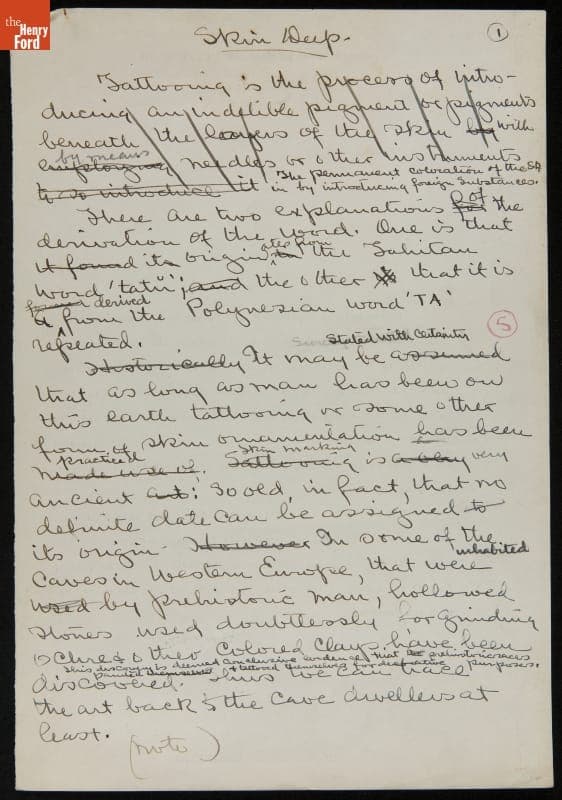 the Henry Ford
Skin Deep.
1
Tattooing is the process of intro-
ducing an indelible pigment or pigments
beneath the layers of the skin by with
employing by means needles or other instruments
to so introduce it in by introducing foreign substances.
The permanent coloration of the
There are two explanations for of the
derivation of the word. One is that
it found its origin in the Tahitan
word 'tatu'; and the other that it is
derived
from the Polynesian word 'TA'
5
repeated.
stated with certainty
Historically It may be assumed
that as long as man has been on
this earth tattooing or some other
form of skin ornamentation has been
practiced skin marking
made use of. Tattooing is a very very
ancient art; so old, in fact, that no
definite date can be assigned to
its origin. However In some of the
inhabited
caves in Western Europe, that were
used by prehistoric man, hollowed
stones used doubtlessly for grinding
ochre & other colored clays, have been
this discovery is deemed conclusive evidence that the prehistoric races
painted themselves & tattooed themselves for decorative purposes.
discovered. Thus we can trace
the art back to the cave dwellers at
least.
(note)